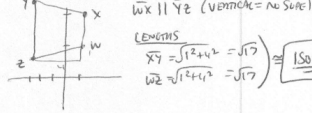 Y
X
W
Z
WX || YZ (VERTICAL = NO SLOPE)
LENGTHS
XY = √1²+4² = √17
WZ = √1²+4² = √17
≅
ISO